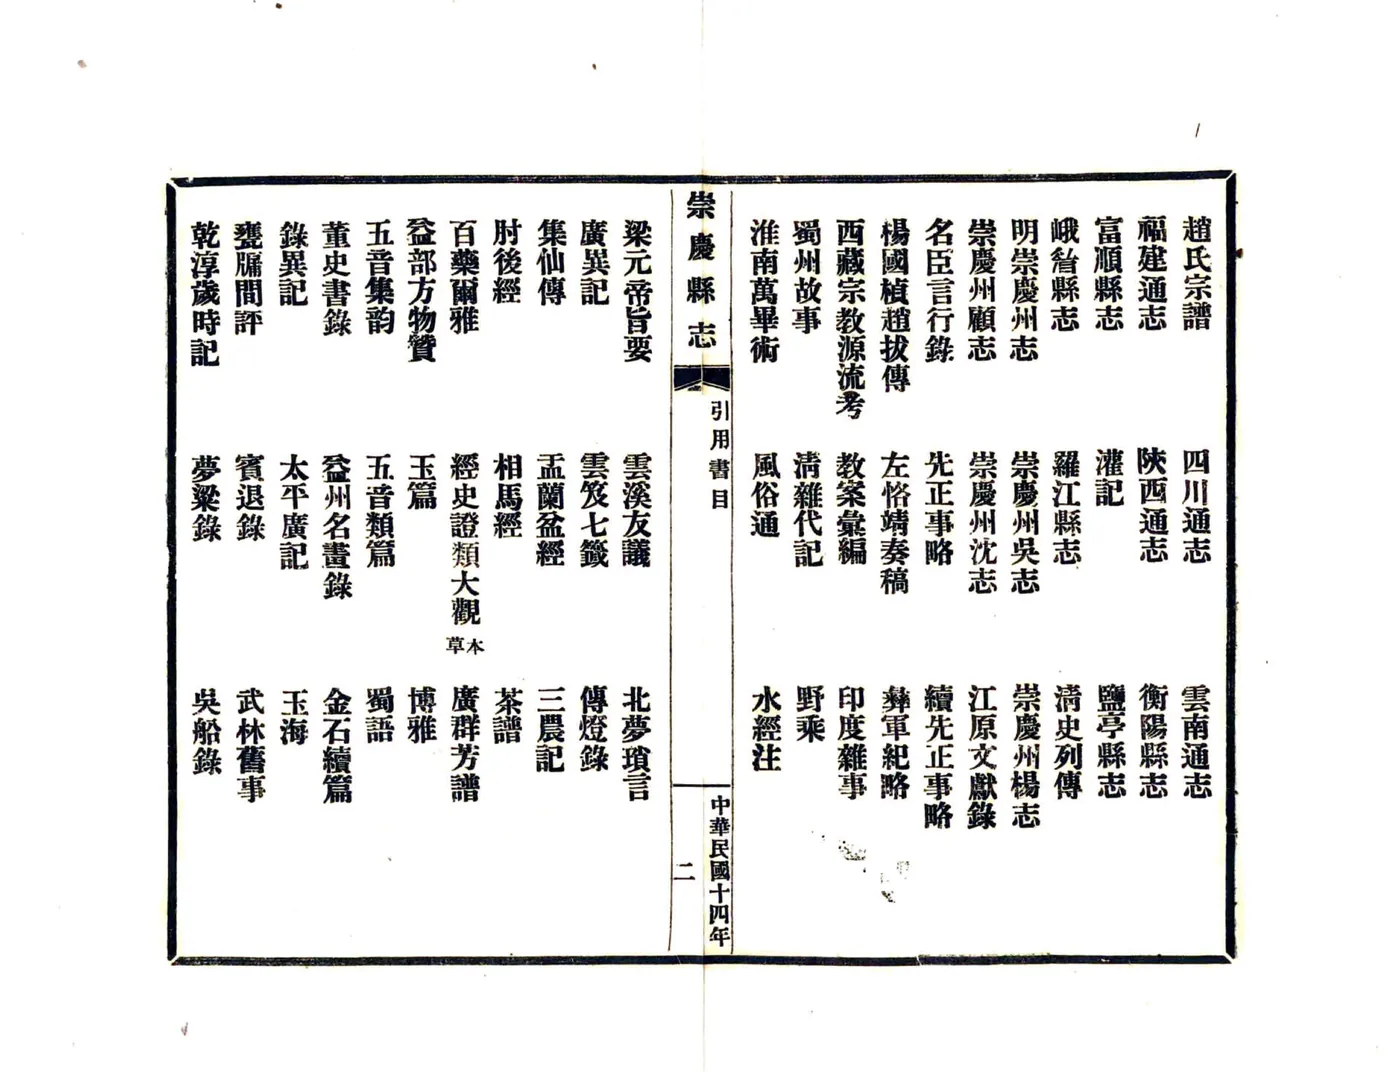 趙氏宗譜 四川通志 雲南通志
福建通志 陝西通志 衡陽縣志
富順縣志 灌記 鹽亭縣志
峨眉縣志 羅江縣志 清史列傳
明崇慶州志 崇慶州吳志 崇慶州楊志
崇慶州顧志 崇慶州沈志 江原文獻錄
名臣言行錄 先正事略 續先正事略
楊國楨趙拔傳 左恪靖奏稿 彝軍紀略
西藏宗教源流考 教案彙編 印度雜事
蜀州故事 清雜代記 野乘
淮南萬畢術 風俗通 水經注
崇慶縣志 引用書目 二 中華民國十四年
梁元帝旨要 雲溪友議 北夢瑣言
廣異記 雲笈七籤 傳燈錄
集仙傳 盂蘭盆經 三農記
肘後經 相馬經 茶譜
百藥爾雅 經史證類大觀本草 廣群芳譜
益部方物贊 玉篇 博雅
五音集韵 五音類篇 蜀語
董史書錄 益州名畫錄 金石續篇
錄異記 太平廣記 玉海
甕牖間評 賓退錄 武林舊事
乾淳歲時記 夢粱錄 吳船錄